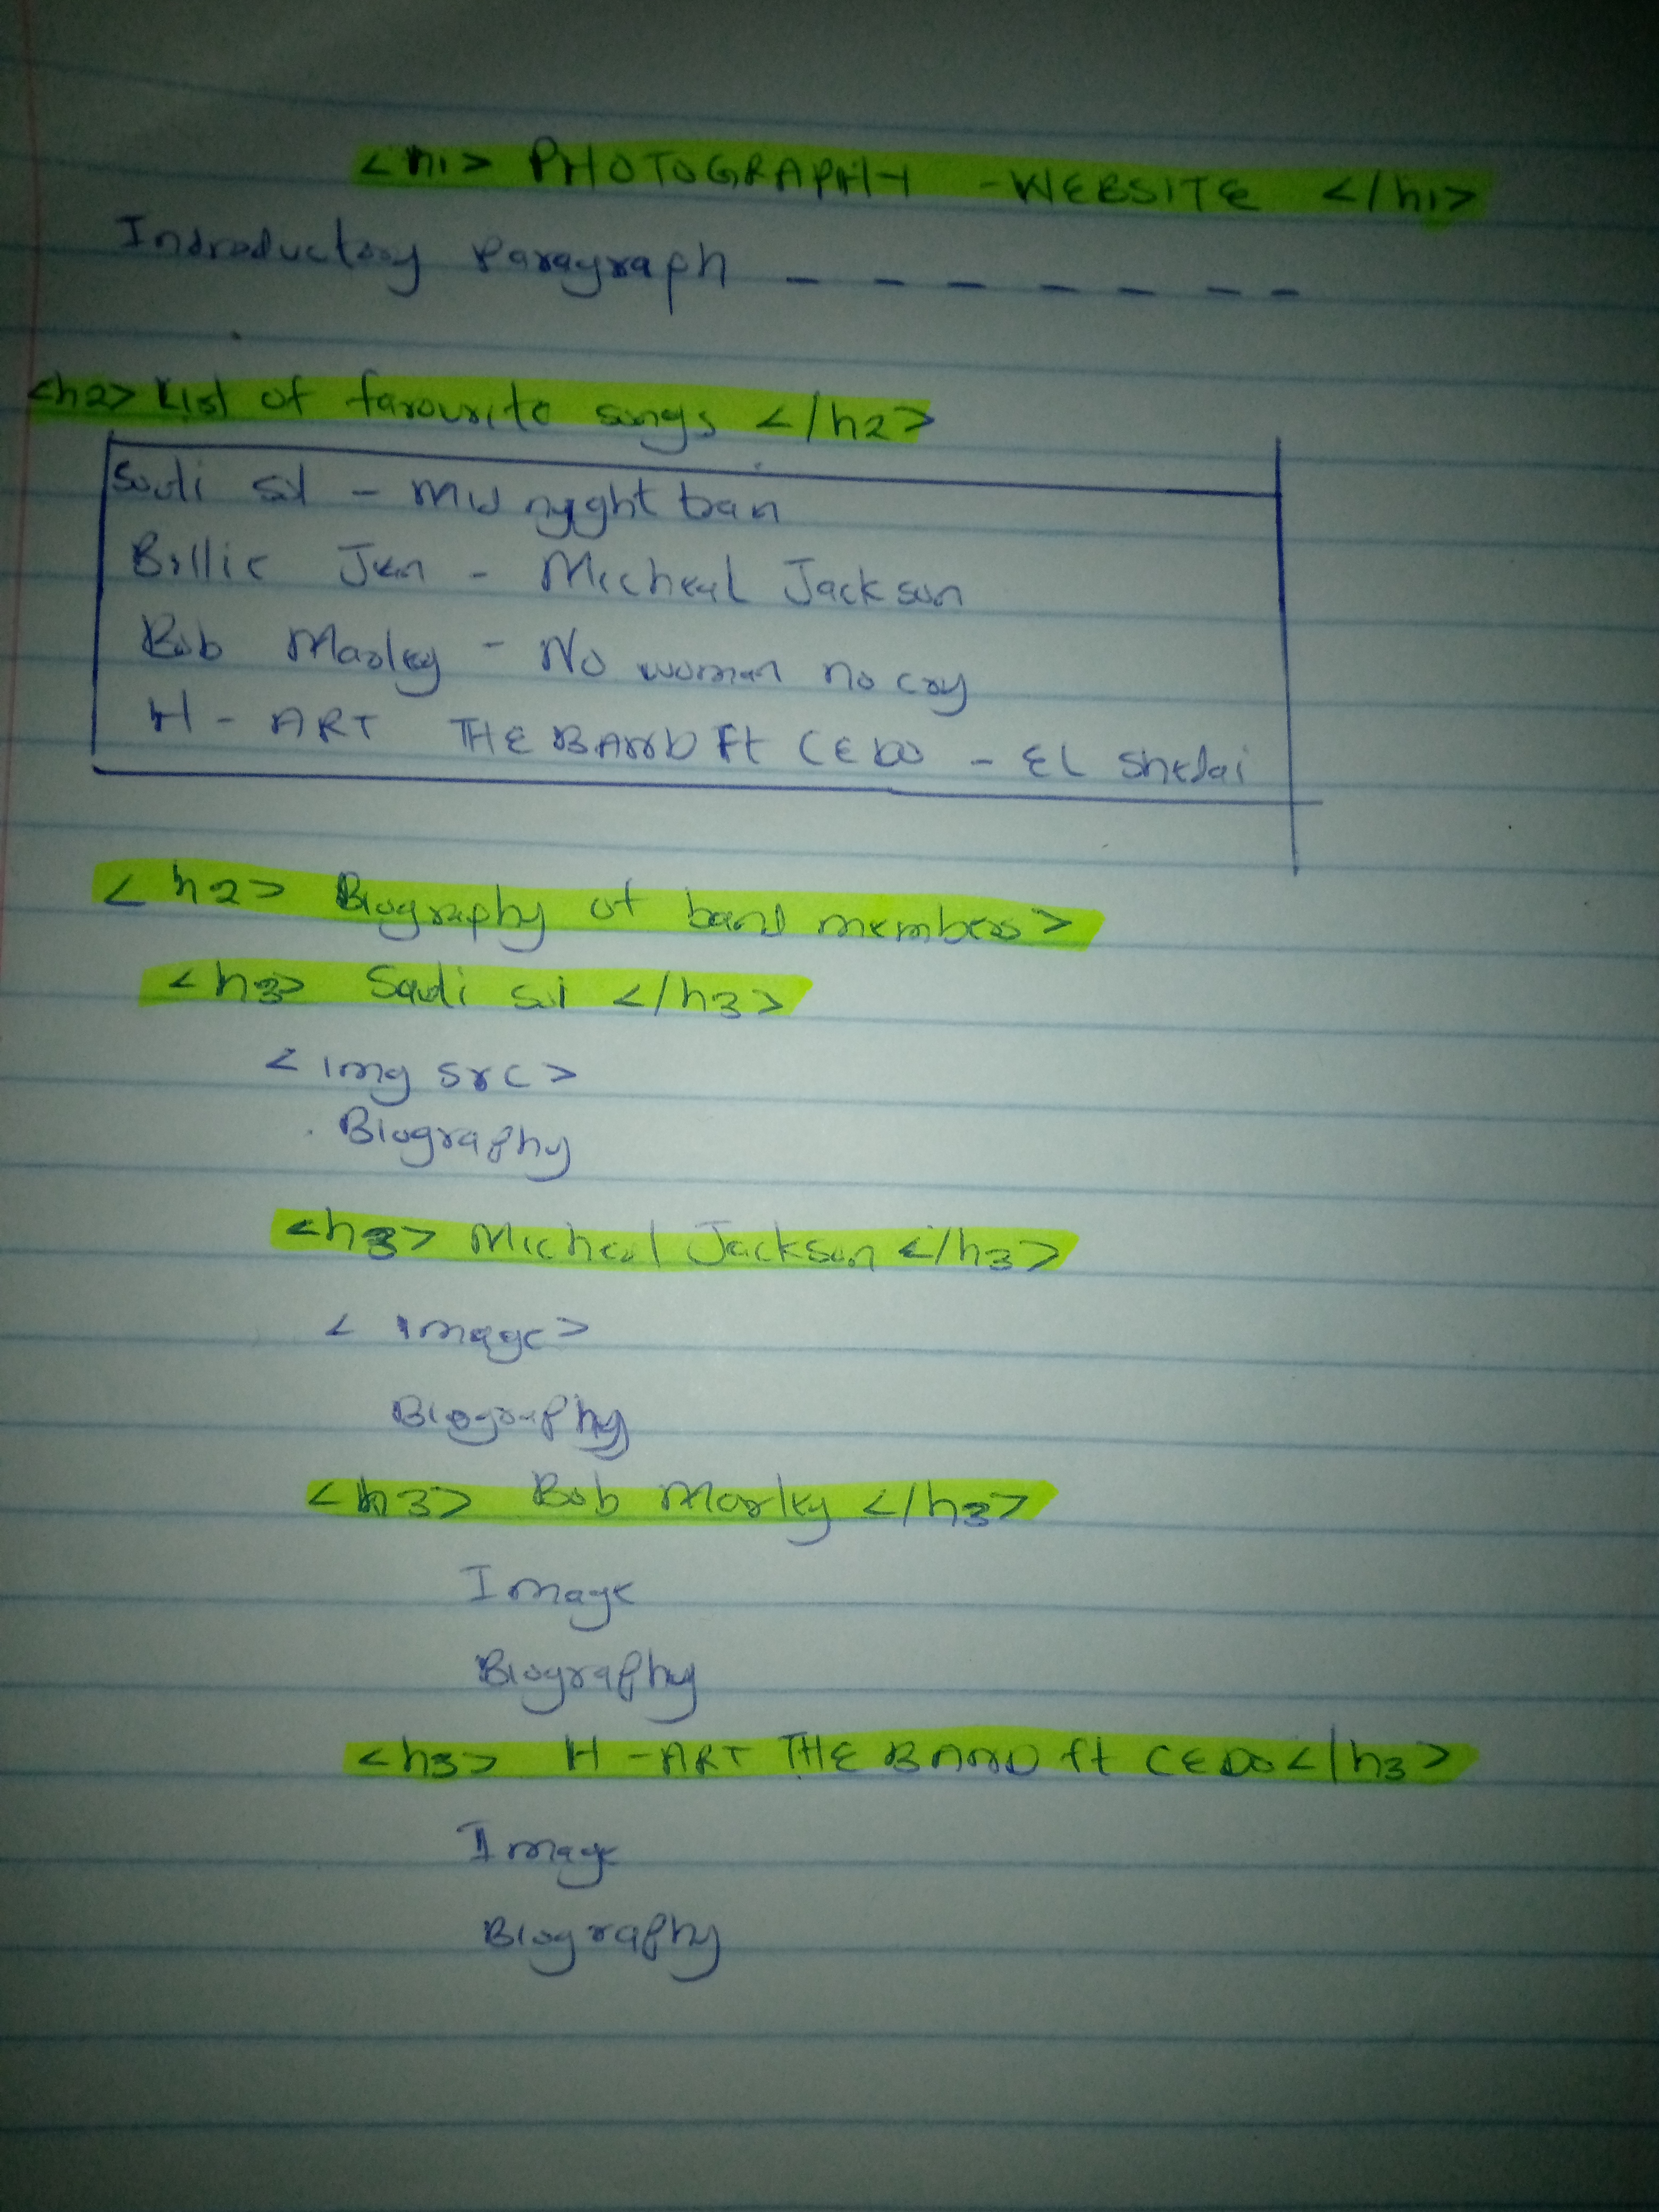 <h1> PHOTOGRAPHY - WEBSITE </h1>
Introductory Paragraph - - - - - - -
<h2> List of favourite songs </h2>
Sauti sol - Midnyght tran
Billie Jen - Micheal Jackson
Bob Marley - No woman no cry
H - ART THE BAND Ft CEDO - EL Shedai
<h2> Biography of band members>
<h3> Sauti sol </h3>
<img src>
Biography
<h3> Micheal Jackson </h3>
<image>
Biography
<h3> Bob Marley </h3>
Image
Biography
<h3> H - ART THE BAND ft CEDO </h3>
Image
Biography